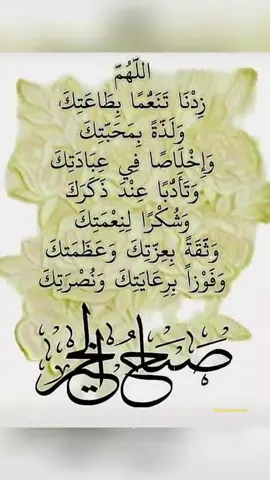 اللّهُمّ
زِدْنَا تَنَعُّمًا بِطَاعَتِكَ
وَلَذّةً بِمَحَبّتِكَ
وَإِخْلَاصًا فِي عِبَادَتِكَ
وَتَأَدُّبًا عِنْدَ ذَكَرَكَ
وَشُكْرًا لِنِعْمَتِكَ
وَثِّقَةً بِعِزّتِكَ وَعَظَمَتكَ
وَفَوْزاً بِرِعَايَتِكَ وَنُصْرَتِكَ
صَبَاحُ الخير